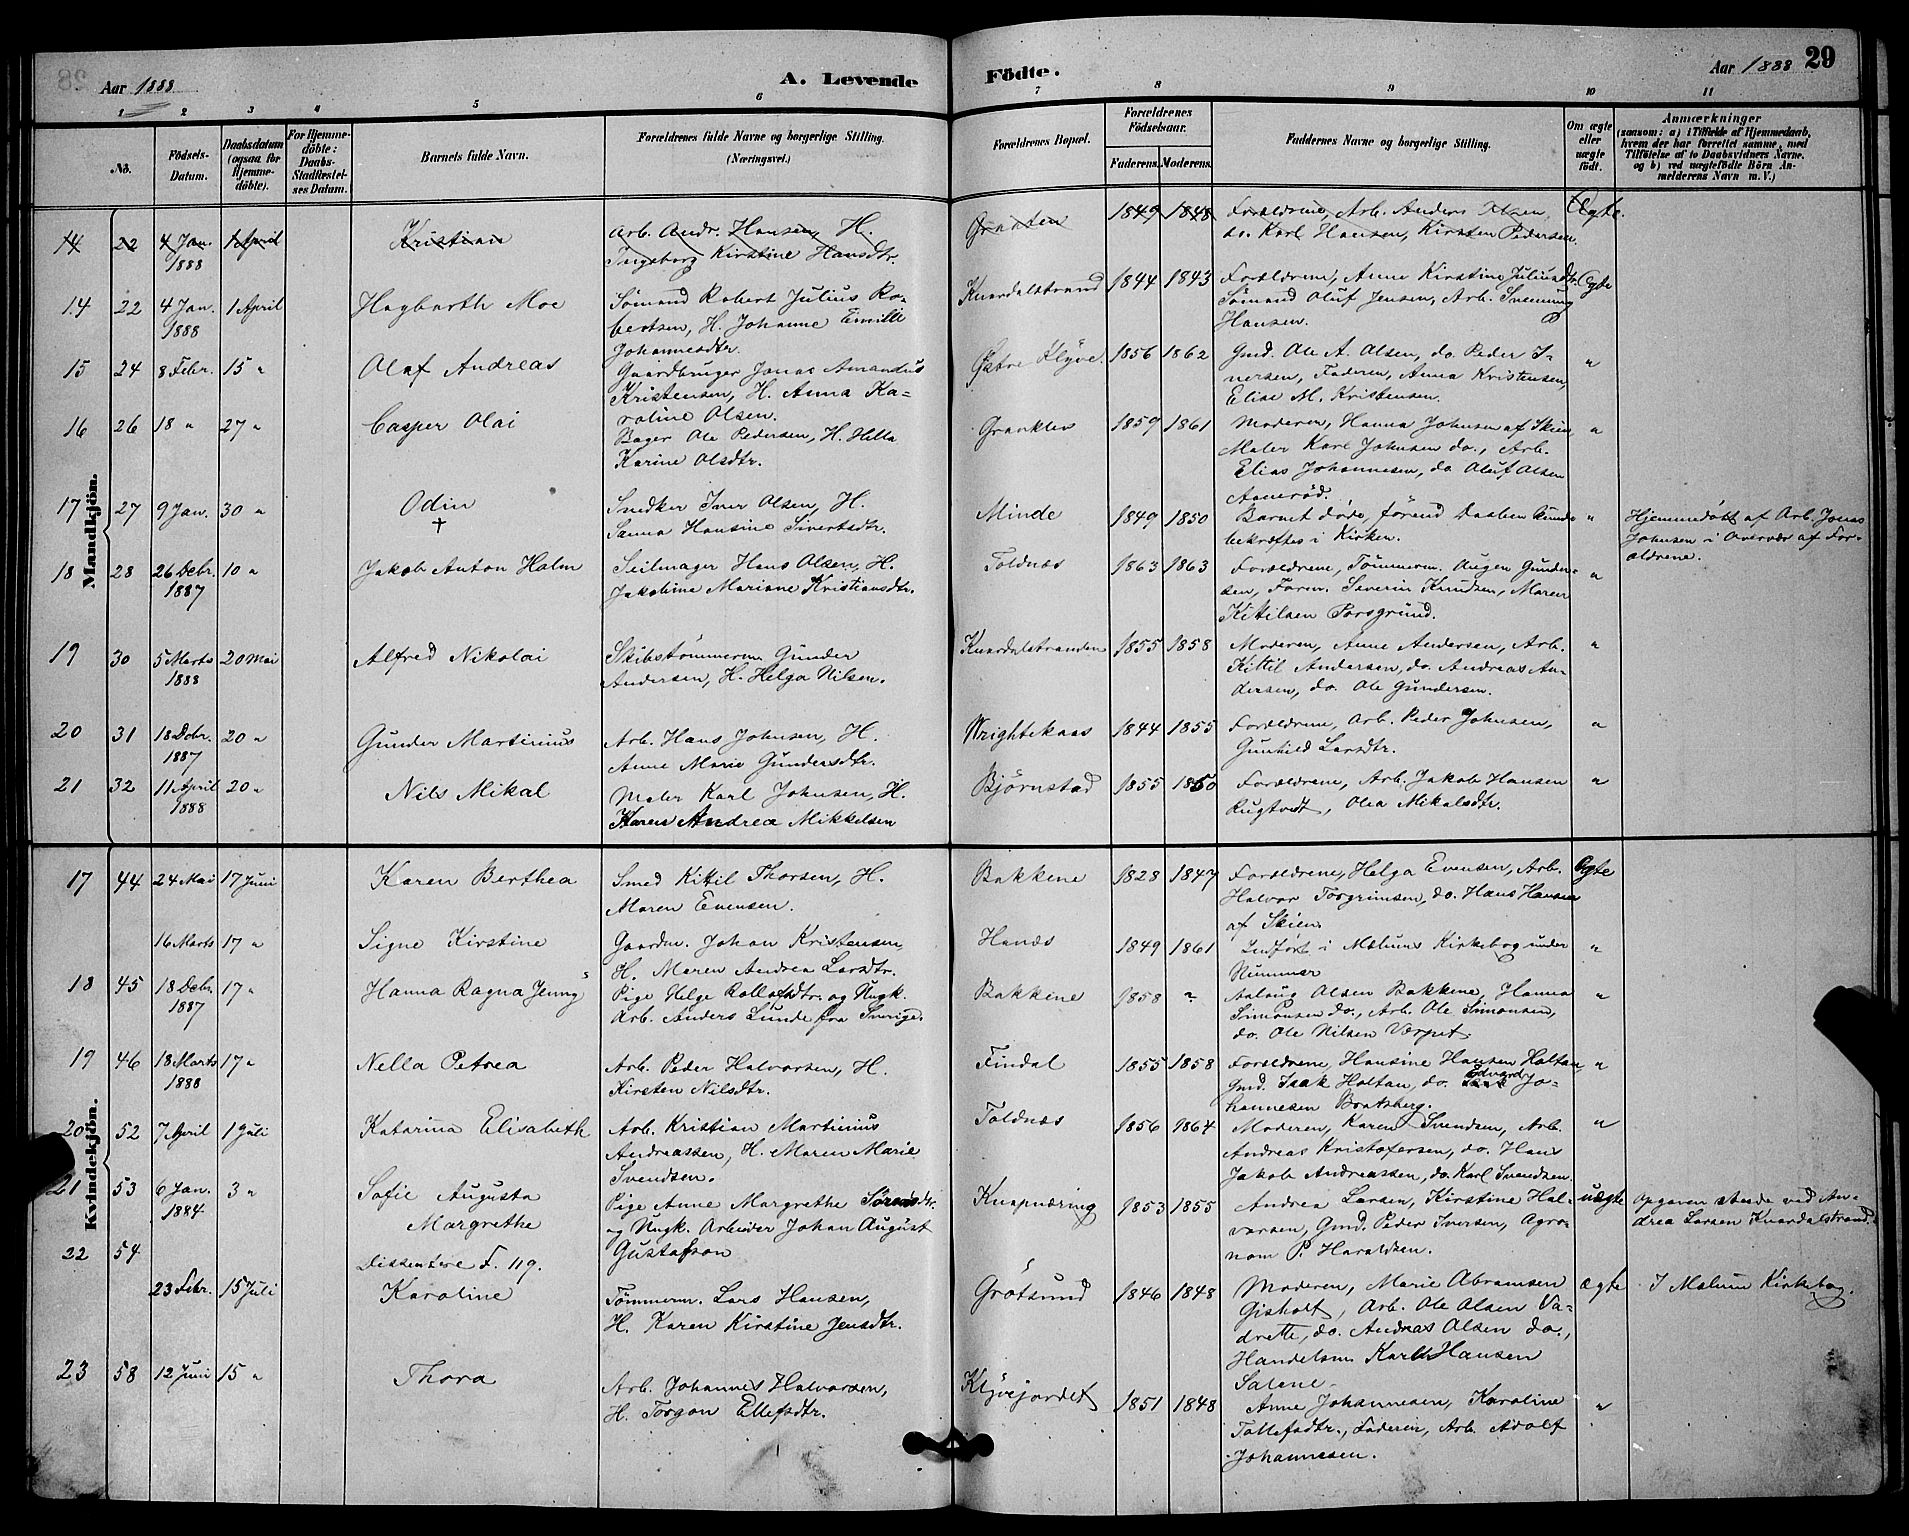 28
Aar 1888
A. Levende
Födte.
Aar 1888
29
1 2 3 4 5 6 7 8 9 10 11
No.
Födsels-
Datum.
Daabsdatum
(ogsaa for
Hjemme-
döbte).
For Hjemme-
döbte:
Daabs-
Stadfæstel-
ses Datum.
Barnets fulde Navn.
Forældrenes fulde Navne og borgerlige Stilling.
(Næringsvei.)
Forældrenes Bopæl.
Forældrenes
Födselsaar.
Faderens. Moderens.
Faddernes Navne og borgerlige Stilling.
Om ægte
eller
uægte
födt.
Anmærkninger
(saasom: a) i Tilfælde af Hjemmedaab,
hvem der har forrettet samme, med
Tilföielse af to Daabsvidners Navne,
og b) ved uægtefödte Börn An-
melderens Navn m. V.)
Mandkjön.
14 22 4 Jan. 1888 1 April
Kristian
Arb. Andr. Hansen, H.
Ingeborg Kirstine Hansdtr.
Graaten
1849 1848
Forældrene, Arb. Anders Olsen,
do. Karl Hansen, Kirsten Pedersen.
Ægte.
14 22 4 Jan. 1888 1 April
Hagbarth Moe
Sømand Robert Julius Ro-
bertsen, H. Johanne Emilie
Johannesdtr.
Knardalstrand
1844 1843
Forældrene, Anne Kirstine Juliusdtr.
Sømand Oluf Jensen, Arb. Svennung
Hansen.
Ægte
15 24 8 Febr. 15 "
Olaf Andreas
Gaardbruger Jonas Amandus
Kristensen, H. Anna Ka-
roline Olsen.
Østre Klyve
1856 1862
Gmd. Ole A. Olsen, do. Peder I-
versen, Faderen, Anna Kristensen,
Elise M. Kristensen.
"
16 26 18 " 27 "
Casper Olai
Bager Ole Pedersen, H. Hella
Karine Olsdtr.
Graaklev
1859 1861
Moderen, Hanna Johnsen af Skien,
Maler Karl Johnsen do., Arb.
Elias Johannesen, do Oluf Olsen
Aanerød.
"
17 27 9 Jan. 30 "
Odin
†
Snedker Iver Olsen, H.
Sanna Hansine Sivertsdtr.
Minde
1849 1850
Barnet døde, førend Daaben kunde
bekræftes i Kirken.
"
Hjemmedøbt af Arb. Jonas
Johnsen i Overvær af For-
ældrene.
18 28 26 Debr. 1887 10 "
Jakob Anton Holm
Seilmager Hans Olsen, H.
Jakobine Mariane Kristiansdtr.
Toldnæs
1863 1863
Forældrene, Tømmerm. Augen Gunder-
sen, Form. Severin Knudsen, Maren
Kittilsen Porsgrund.
"
19 30 5 Marts 1888 20 Mai
Alfred Nikolai
Skibstømmerm. Gunder
Andersen, H. Helga Nilsen.
Knardalstranden
1855 1858
Moderen, Anne Andersen, Arb.
Kittil Andersen, do. Andreas An-
dersen, do. Ole Gundersen.
"
20 31 18 Debr. 1887 20 "
Gunder Martinius
Arb. Hans Johnsen, H.
Anne Marie Gundersdtr.
Wrightekaas
1844 1855
Forældrene, Arb. Peder Johnsen,
Gunhild Larsdtr.
"
21 32 11 April 1888 20 "
Nils Mikal
Maler Karl Johnsen, H.
Karen Andrea Mikkelsen
Bjørnstad
1855 1850
Forældrene, Arb. Jakob Hansen
Rugtvedt, Olea Mikalsdtr.
"
Kvindekjön.
17 44 24 Mai 17 Juni
Karen Berthea
Smed Kittil Thorsen, H.
Maren Evensen.
Bakkene
1828 1847
Forældrene, Helga Evensen, Arb.
Halvor Torgrimsen, do. Hans Hansen
af Skien
Ægte
16 Marts 17 "
Signe Kirstine
Gaardm. Johan Kristensen,
H. Maren Andrea Larsdtr.
Hanæs
1849 1861
Indført i Mælums Kirkebog under
Nummer
"
18 45 18 Debr. 1887 17 "
Hanna Ragna Jenny
Pige Helge Rollefsdtr. og Ungk.
Arb. Anders Lunde fra Sverige.
Bakkene
1858 ?
Aslaug Olsen Bakkene, Hanna
Simonsen do., Arb. Ole Simonsen,
do. Ole Nilsen Værpet.
"
19 46 18 Marts 1888 17 "
Nella Petrea
Arb. Peder Halvorsen, H.
Kirsten Nilsdtr.
Findal
1855 1858
Forældrene, Hansine Hansen Holtan,
Gmd. Isak Holtan, do. Edvard Jo-
hannesen Bratsberg.
"
20 52 7 April 1 Juli
Katarina Elisabeth
Arb. Kristian Martinius
Andreassen, H. Maren Marie
Svendsen.
Toldnæs
1856 1864
Moderen, Karen Svendsen, Arb.
Andreas Kristofersen, do. Hans
Jakob Andreassen, do. Karl Svendsen.
"
21 53 6 Jan. 1884 3 "
Sofie Augusta
Margrethe
Pige Anne Margrethe Sørensdtr.
og Ungk. Arbeider Johan August
Gustafson
Knapnæring
1853 1855
Andrea Larsen, Kirstine Hal-
varsen, Gmd. Peder Iversen, Agro-
nom P. Haraldsen.
uægte
Opgaven skede ved An-
drea Larsen Knardalstrand.
22 54
Dissentere F. 119.
23 Febr. 15 Juli
Karoline
Tømmerm. Lars Hansen,
H. Karen Kirstine Jensdtr.
Grøtsund
1846 1848
Moderen, Marie Abramsen
Gisholt, Arb. Ole Olsen Va-
drette, do. Andreas Olsen do.,
Handelsm. Karl Hansen
Salene.
ægte
I Mælum Kirkebog.
23 58 12 Juni 15 "
Thora
Arb. Johannes Halvorsen,
H. Torgon Ellefsdtr.
Klyvejordet
1851 1848
Anne Johannesen, Karoline
Tollefsdtr., Faderen, Arb. Adolf
Johannesen.
"